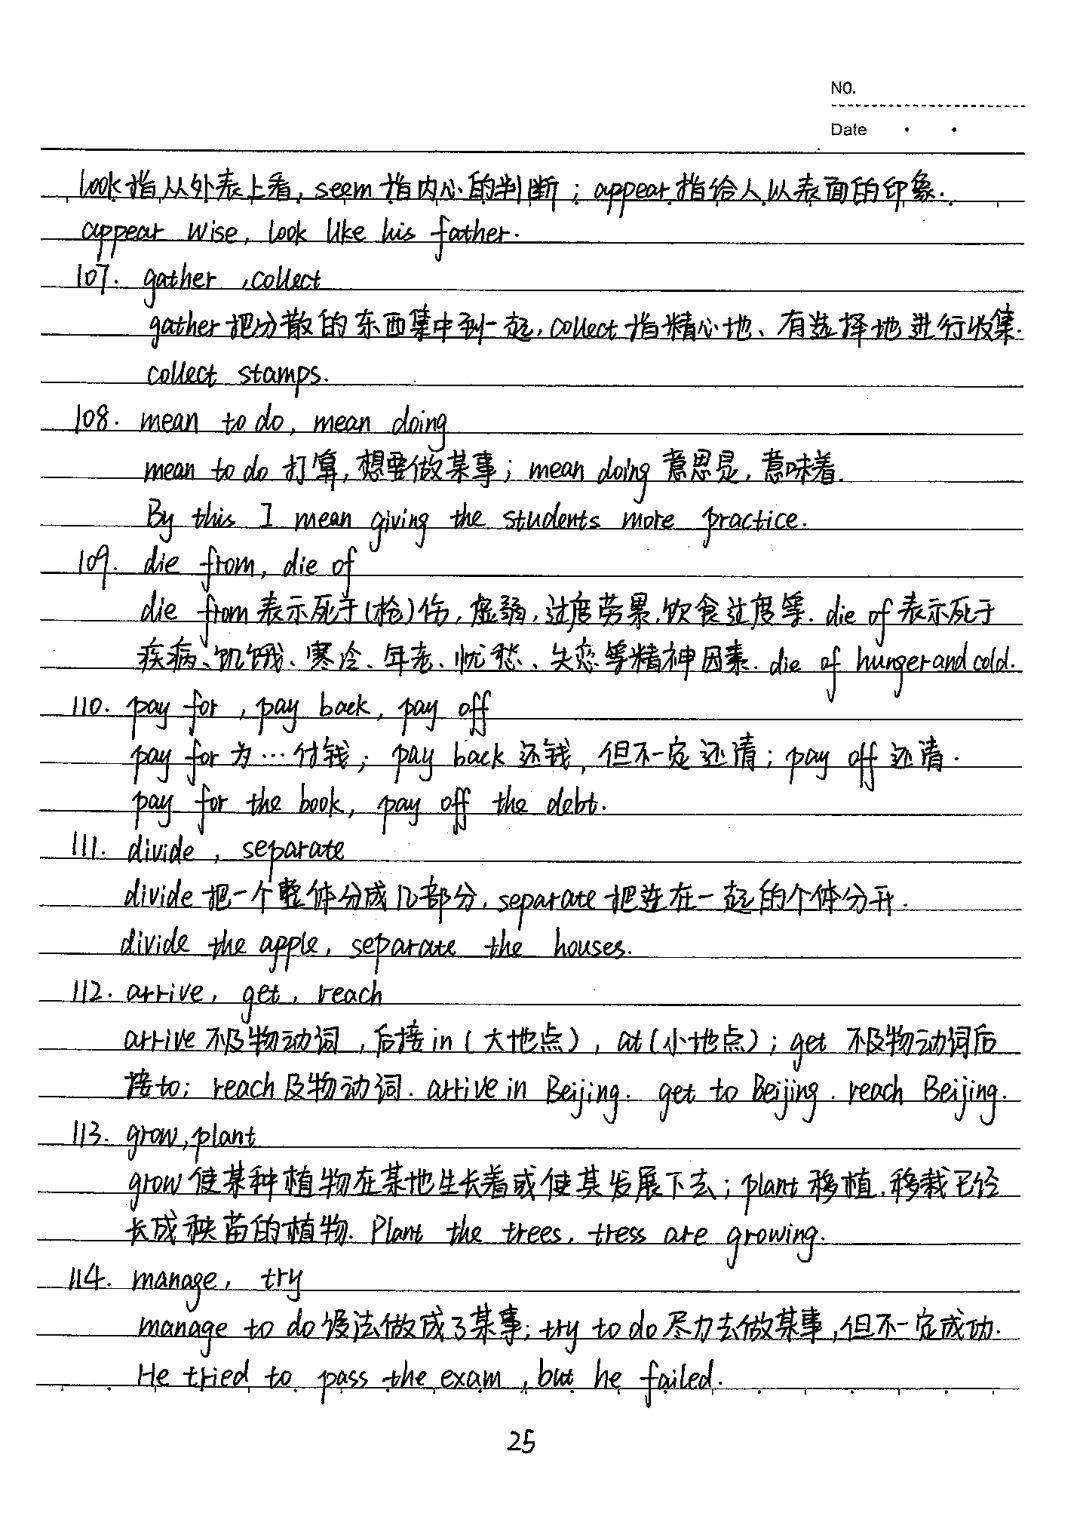 NO.
Date
look指从外表上看, seem指内心的判断; appear指给人以表面的印象.
appear wise, look like his father.
107. gather, collect
gather把分散的东西集中到一起, collect指精心地、有选择地进行收集.
collect stamps.
108. mean to do, mean doing
mean to do 打算, 想要做某事; mean doing 意思是, 意味着.
By this I mean giving the students more practice.
109. die from, die of
die from 表示死于(枪)伤, 虚弱, 过度劳累, 饮食过度等. die of 表示死于
疾病、饥饿、寒冷、年老、忧愁、失恋等精神因素. die of hunger and cold.
110. pay for, pay back, pay off
pay for 为…付钱; pay back 还钱, 但不一定还清; pay off 还清.
pay for the book, pay off the debt.
111. divide, separate
divide 把一个整体分成几部分, separate 把连在一起的个体分开.
divide the apple, separate the houses.
112. arrive, get, reach
arrive 不及物动词, 后接in(大地点), at(小地点); get 不及物动词后
接to; reach及物动词. arrive in Beijing. get to Beijing. reach Beijing.
113. grow, plant
grow 使某种植物在某地生长着或使其发展下去; plant 移植, 移栽已经
长成秧苗的植物. Plant the trees, tress are growing.
114. manage, try
manage to do 设法做成了某事; try to do 尽力去做某事, 但不一定成功.
He tried to pass the exam, but he failed.
25